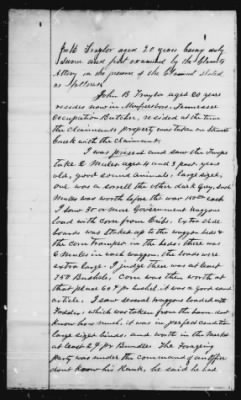 Jno B. Traylor aged 20 years being duly
sworn and first examined by the Claimants
Attory in the presence of the Claimant stated
as follows
John B Traylor aged 20 years
resides now in Murfreesboro, Tennessee
Occupation Butcher, resided at the time
the Claimants property was taken on Stones
Creek with the Claimant.
I was present and saw the troops
take 2 Mules aged 4 and 5 past years
old, good sound animals, large sized,
one was a sorrell the other dark Grey, both
Mules was worth before the war 150.00 each
I saw 30 or more Government waggons
load with corn from Cribs. Extra side
boards was staked up to the waggon beds &
the corn tramped in the beds. there was
6 Mules in each waggon, the loads were
extra large - I judge there was at least
750 Bushels, Corn was then worth at
that place 60 ¢ pr bushel it was a good sound
article. I saw several Waggons loaded with
Fodder, which was taken from the barn do not
know how much, it was in perfect condition
large sized binds. and worth in the Market
at least 2 ¢ pr Bundle. The Foraging
party was under the command of an officer
dont know his Rank, he said he had